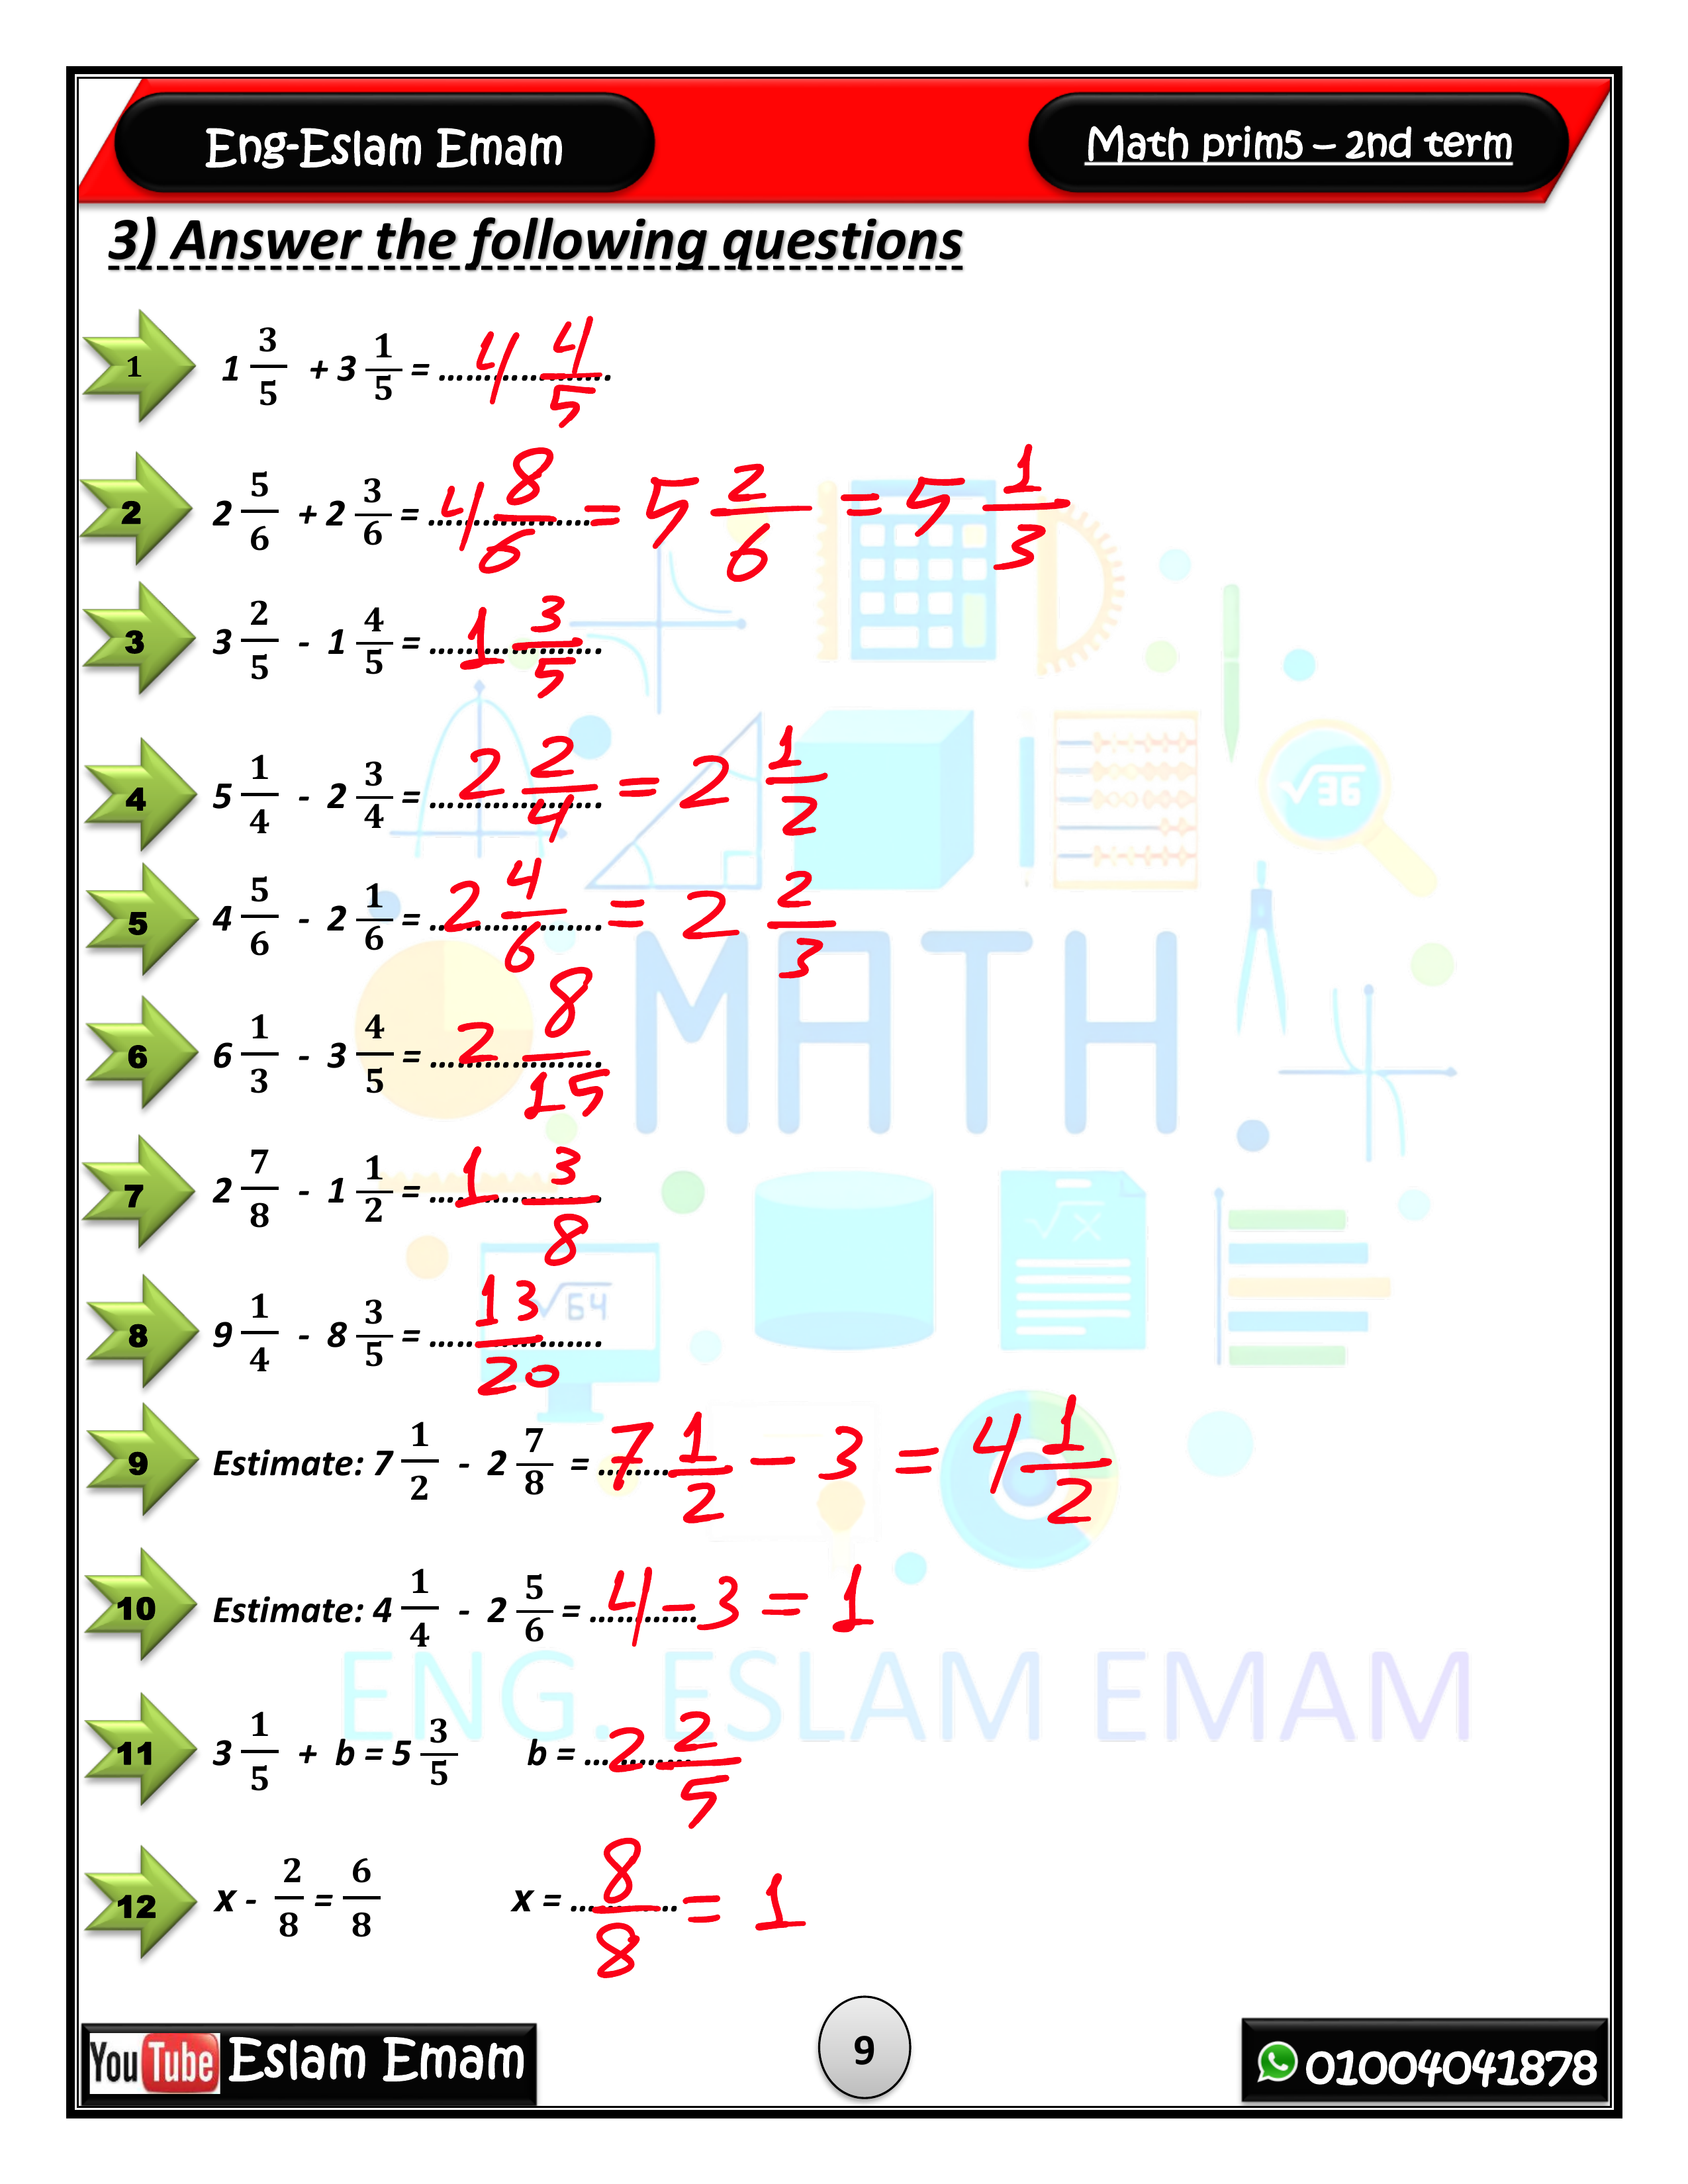 Eng-Eslam Emam
Math prim5 – 2nd term
3) Answer the following questions
1 1 3/5 + 3 1/5 = ................... 4 4/5
2 2 5/6 + 2 3/6 = ................... 4 8/6 = 5 2/6 = 5 1/3
3 3 2/5 - 1 4/5 = ................... 1 3/5
4 5 1/4 - 2 3/4 = ................... 2 2/4 = 2 1/2
5 4 5/6 - 2 1/6 = ................... 2 4/6 = 2 2/3
6 6 1/3 - 3 4/5 = ................... 2 8/15
7 2 7/8 - 1 1/2 = ................... 1 3/8
8 9 1/4 - 8 3/5 = ................... 13/20
9 Estimate: 7 1/2 - 2 7/8 = ......... 7 1/2 - 3 = 4 1/2
10 Estimate: 4 1/4 - 2 5/6 = ............ 4 - 3 = 1
11 3 1/5 + b = 5 3/5 b = ............ 2 2/5
12 x - 2/8 = 6/8 x = ............ 8/8 = 1
√36
MATH
√x
√64
ENG. ESLAM EMAM
YouTube Eslam Emam
9
01004041878